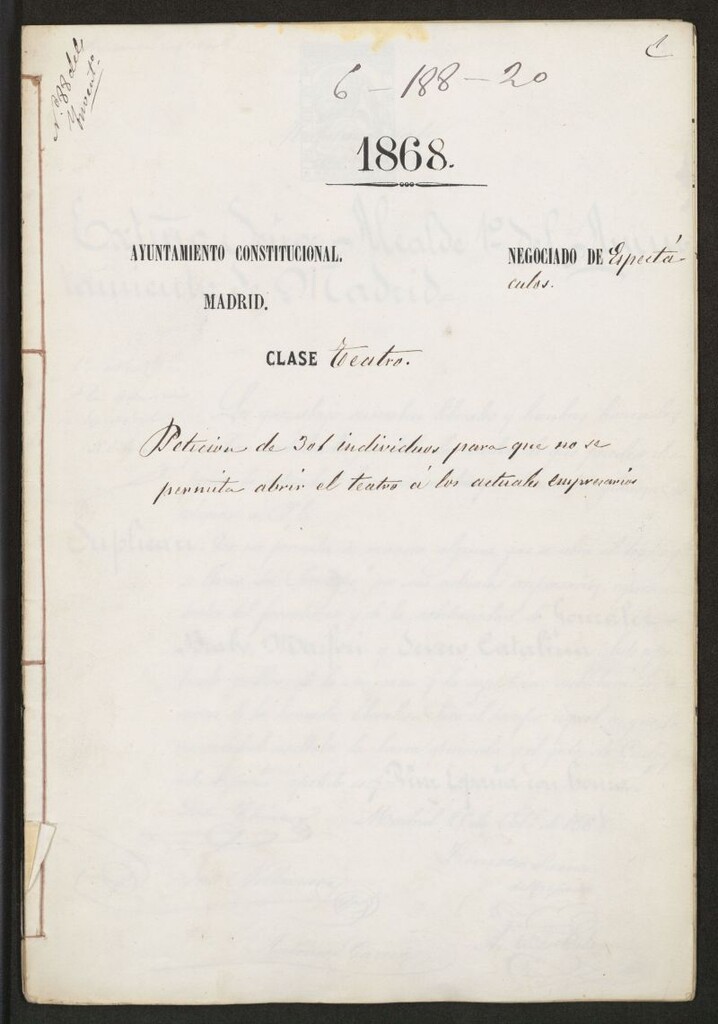 N.º 88 del
Invent.º
1
6-188-20
1868.
AYUNTAMIENTO CONSTITUCIONAL.
MADRID.
NEGOCIADO DE Espectá-
culos.
CLASE Teatro.
Peticion de 301 individuos para que no se
permita abrir el teatro á los actuales empresarios